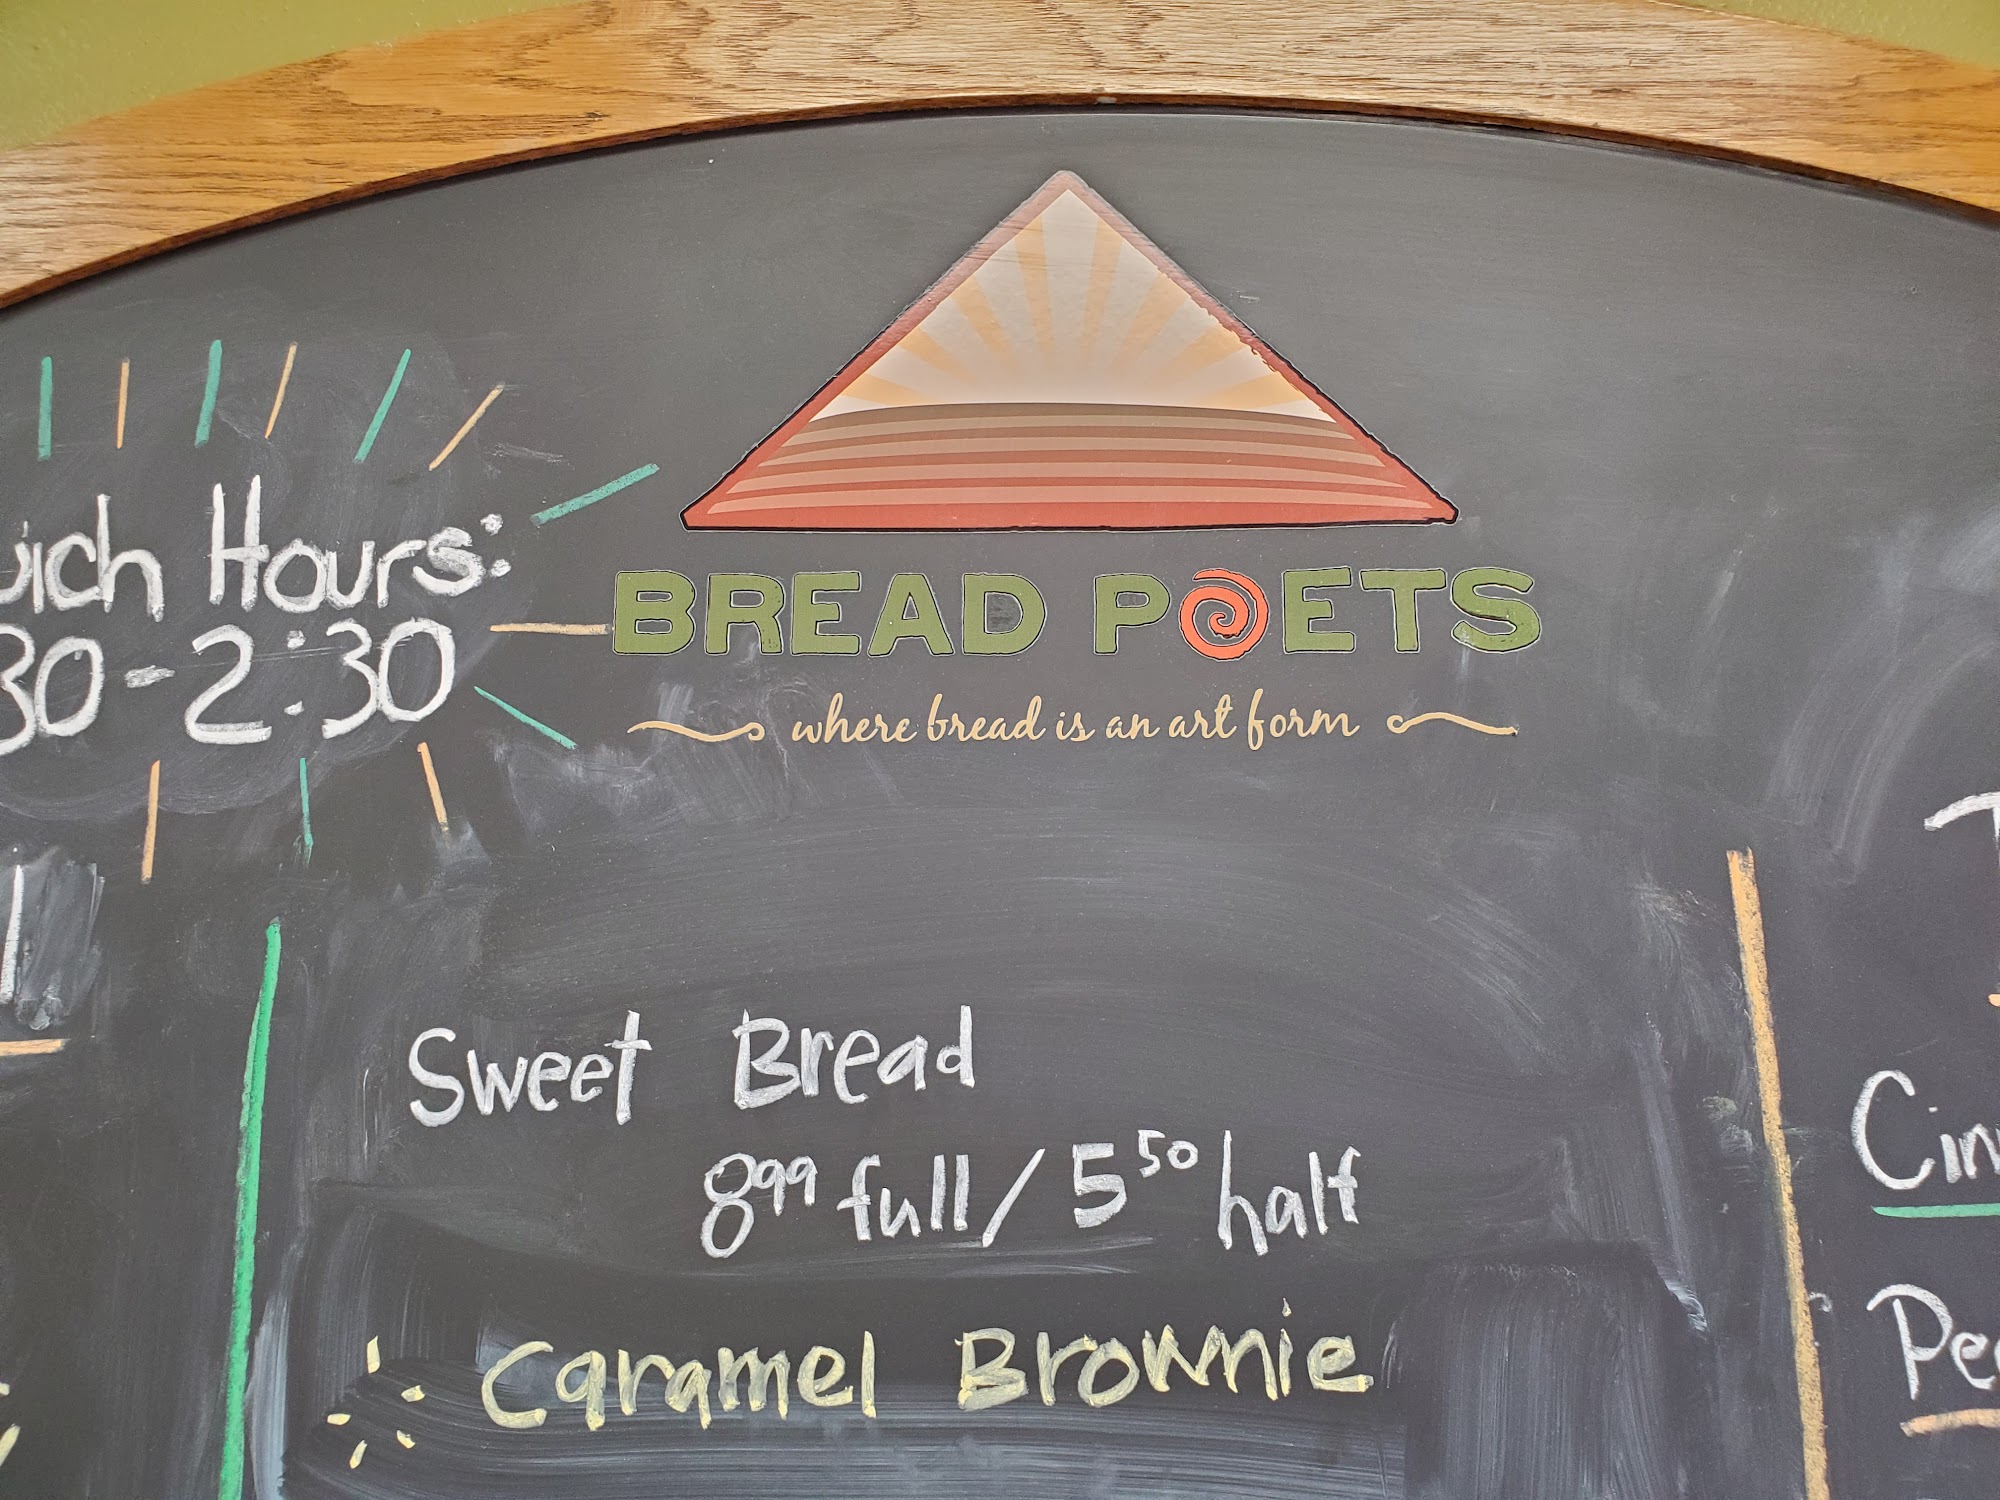 Hours:
30-2:30
BREAD POETS
where bread is an art form
Sweet Bread
8⁹⁹ full / 5⁵⁰ half
Caramel Brownie